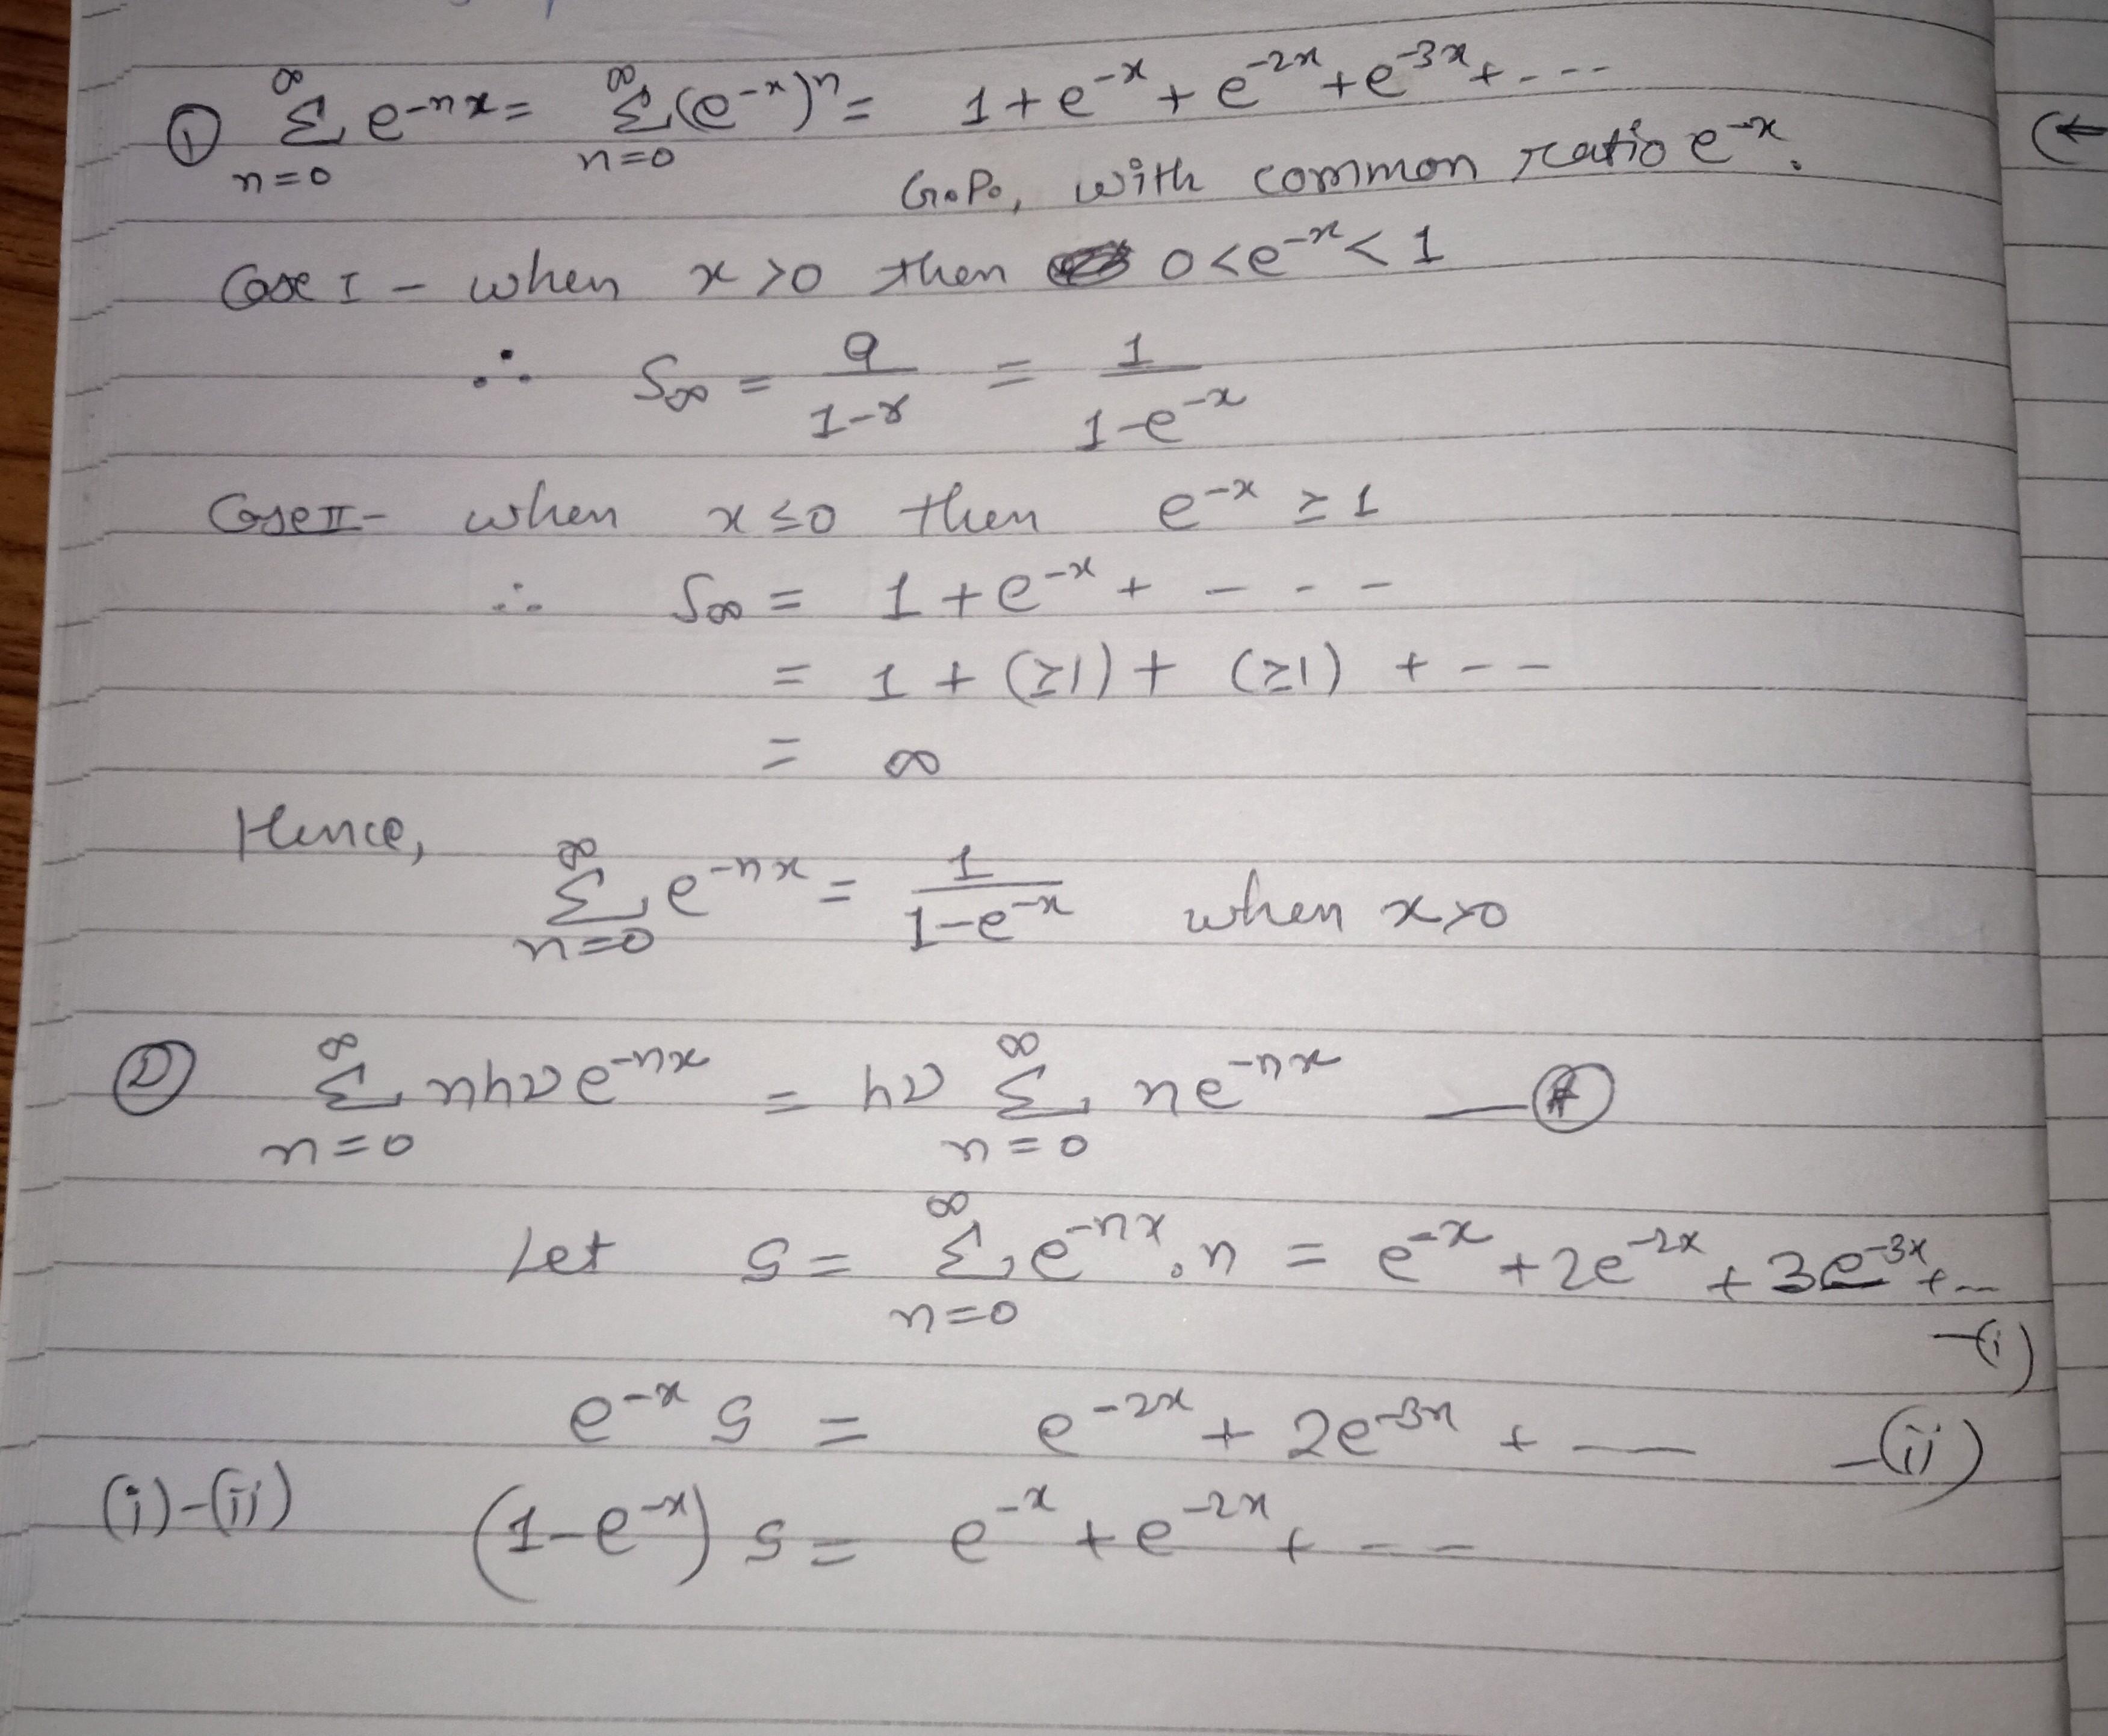 ① ∞Σn=0 e^-nx = ∞Σn=0 (e^-x)^n = 1+e^-x + e^-2x + e^-3x + - - -
G.P., with common ratio e^-x.
Case I - when x>0 then 0<e^-x<1
∴ S∞ = a/1-r = 1/1-e^-x
Case II - when x≤0 then e^-x ≥ 1
∴ S∞ = 1+e^-x + - - - -
= 1 + (≥1) + (≥1) + - -
= ∞
Hence,
∞Σn=0 e^-nx = 1/1-e^-x when x>0
② ∞Σn=0 nhν e^-nx = hν ∞Σn=0 ne^-nx —(#)
Let S = ∞Σn=0 e^-nx . n = e^-x + 2e^-2x + 3e^-3x + ...
-(i)
e^-x S = e^-2x + 2e^-3x + — -(ii)
(i)-(ii) (1-e^-x) S = e^-x + e^-2x + - -